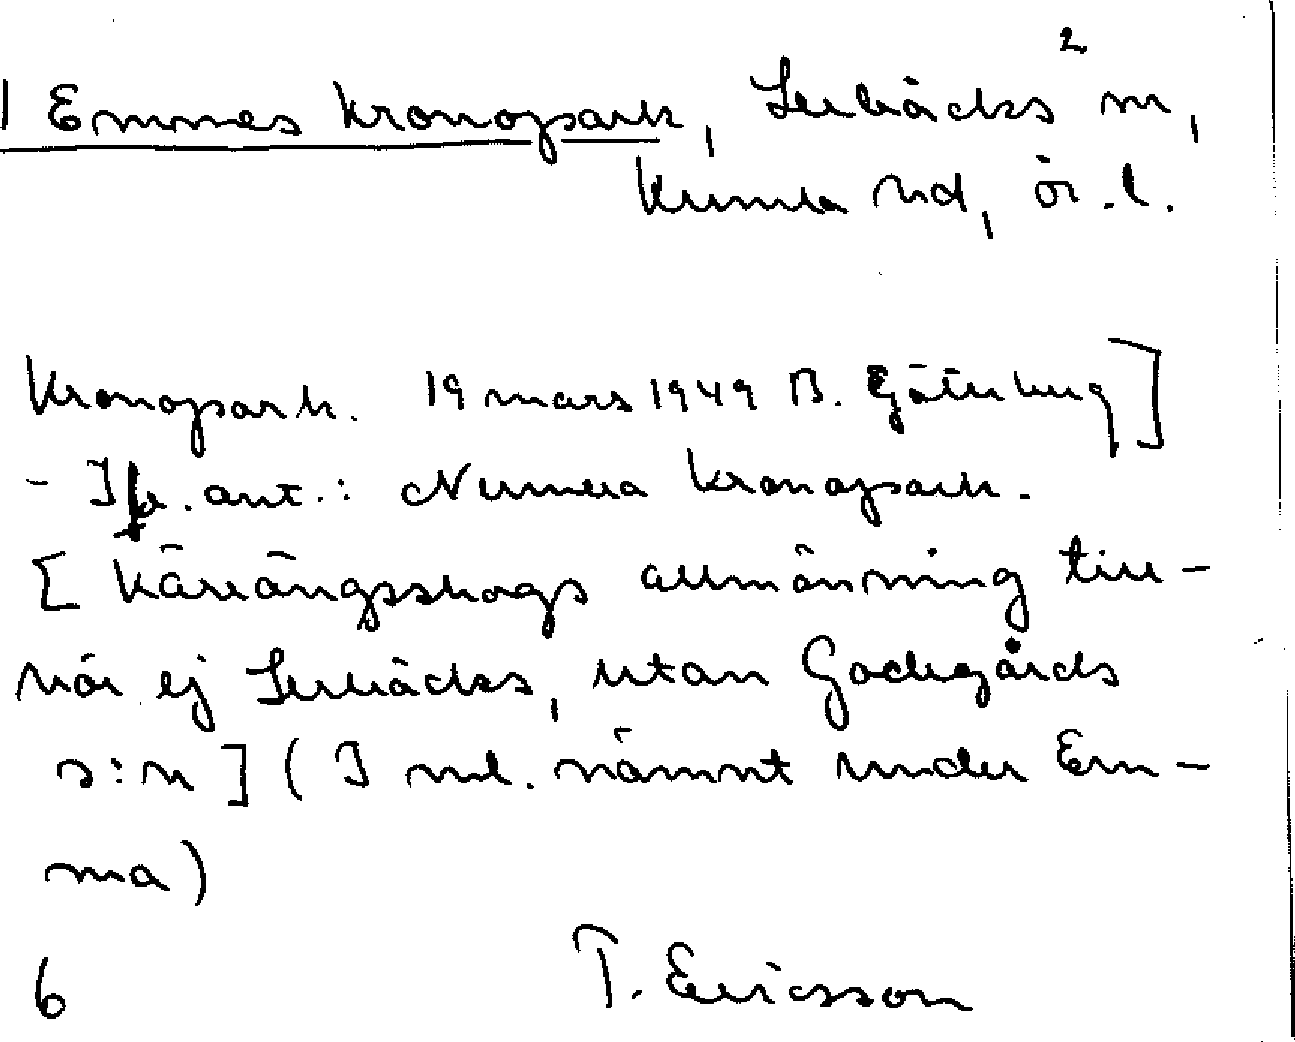 2
Emmes kronopark, Lerbäcks sn,
Kumla hd, Ör. l.
Kronopark. 19 mars 1949 B. Göterberg]
- Jfr. ant.: Numera kronopark.
[ Kärrängsskogs allmänning till-
hör ej Lerbäcks, utan Godegårds
s:n ] ( I ml. nämnt under Em-
ma)
6 T. Ericsson